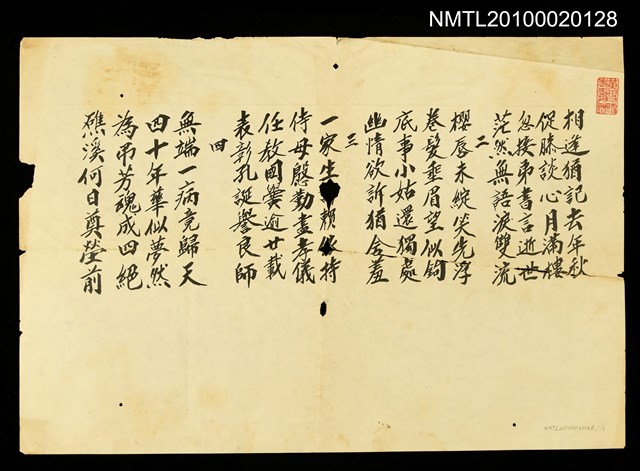 NMTL20100020128
相逢猶記去年秋
促膝談心月滿樓
忽接弟書言逝世
茫然無語淚雙流
二
櫻唇未綻笑先浮
卷髮垂眉望似鈎
底事小姑還獨處
幽情欲訴猶含羞
三
一家生 賴係持
侍母慇勤盡孝儀
任教國黌逾廿載
表彰孔誕譽良師
四
無端一病竟歸天
四十年華似夢然
為弔芳魂成四絕
礁溪何日奠塋前